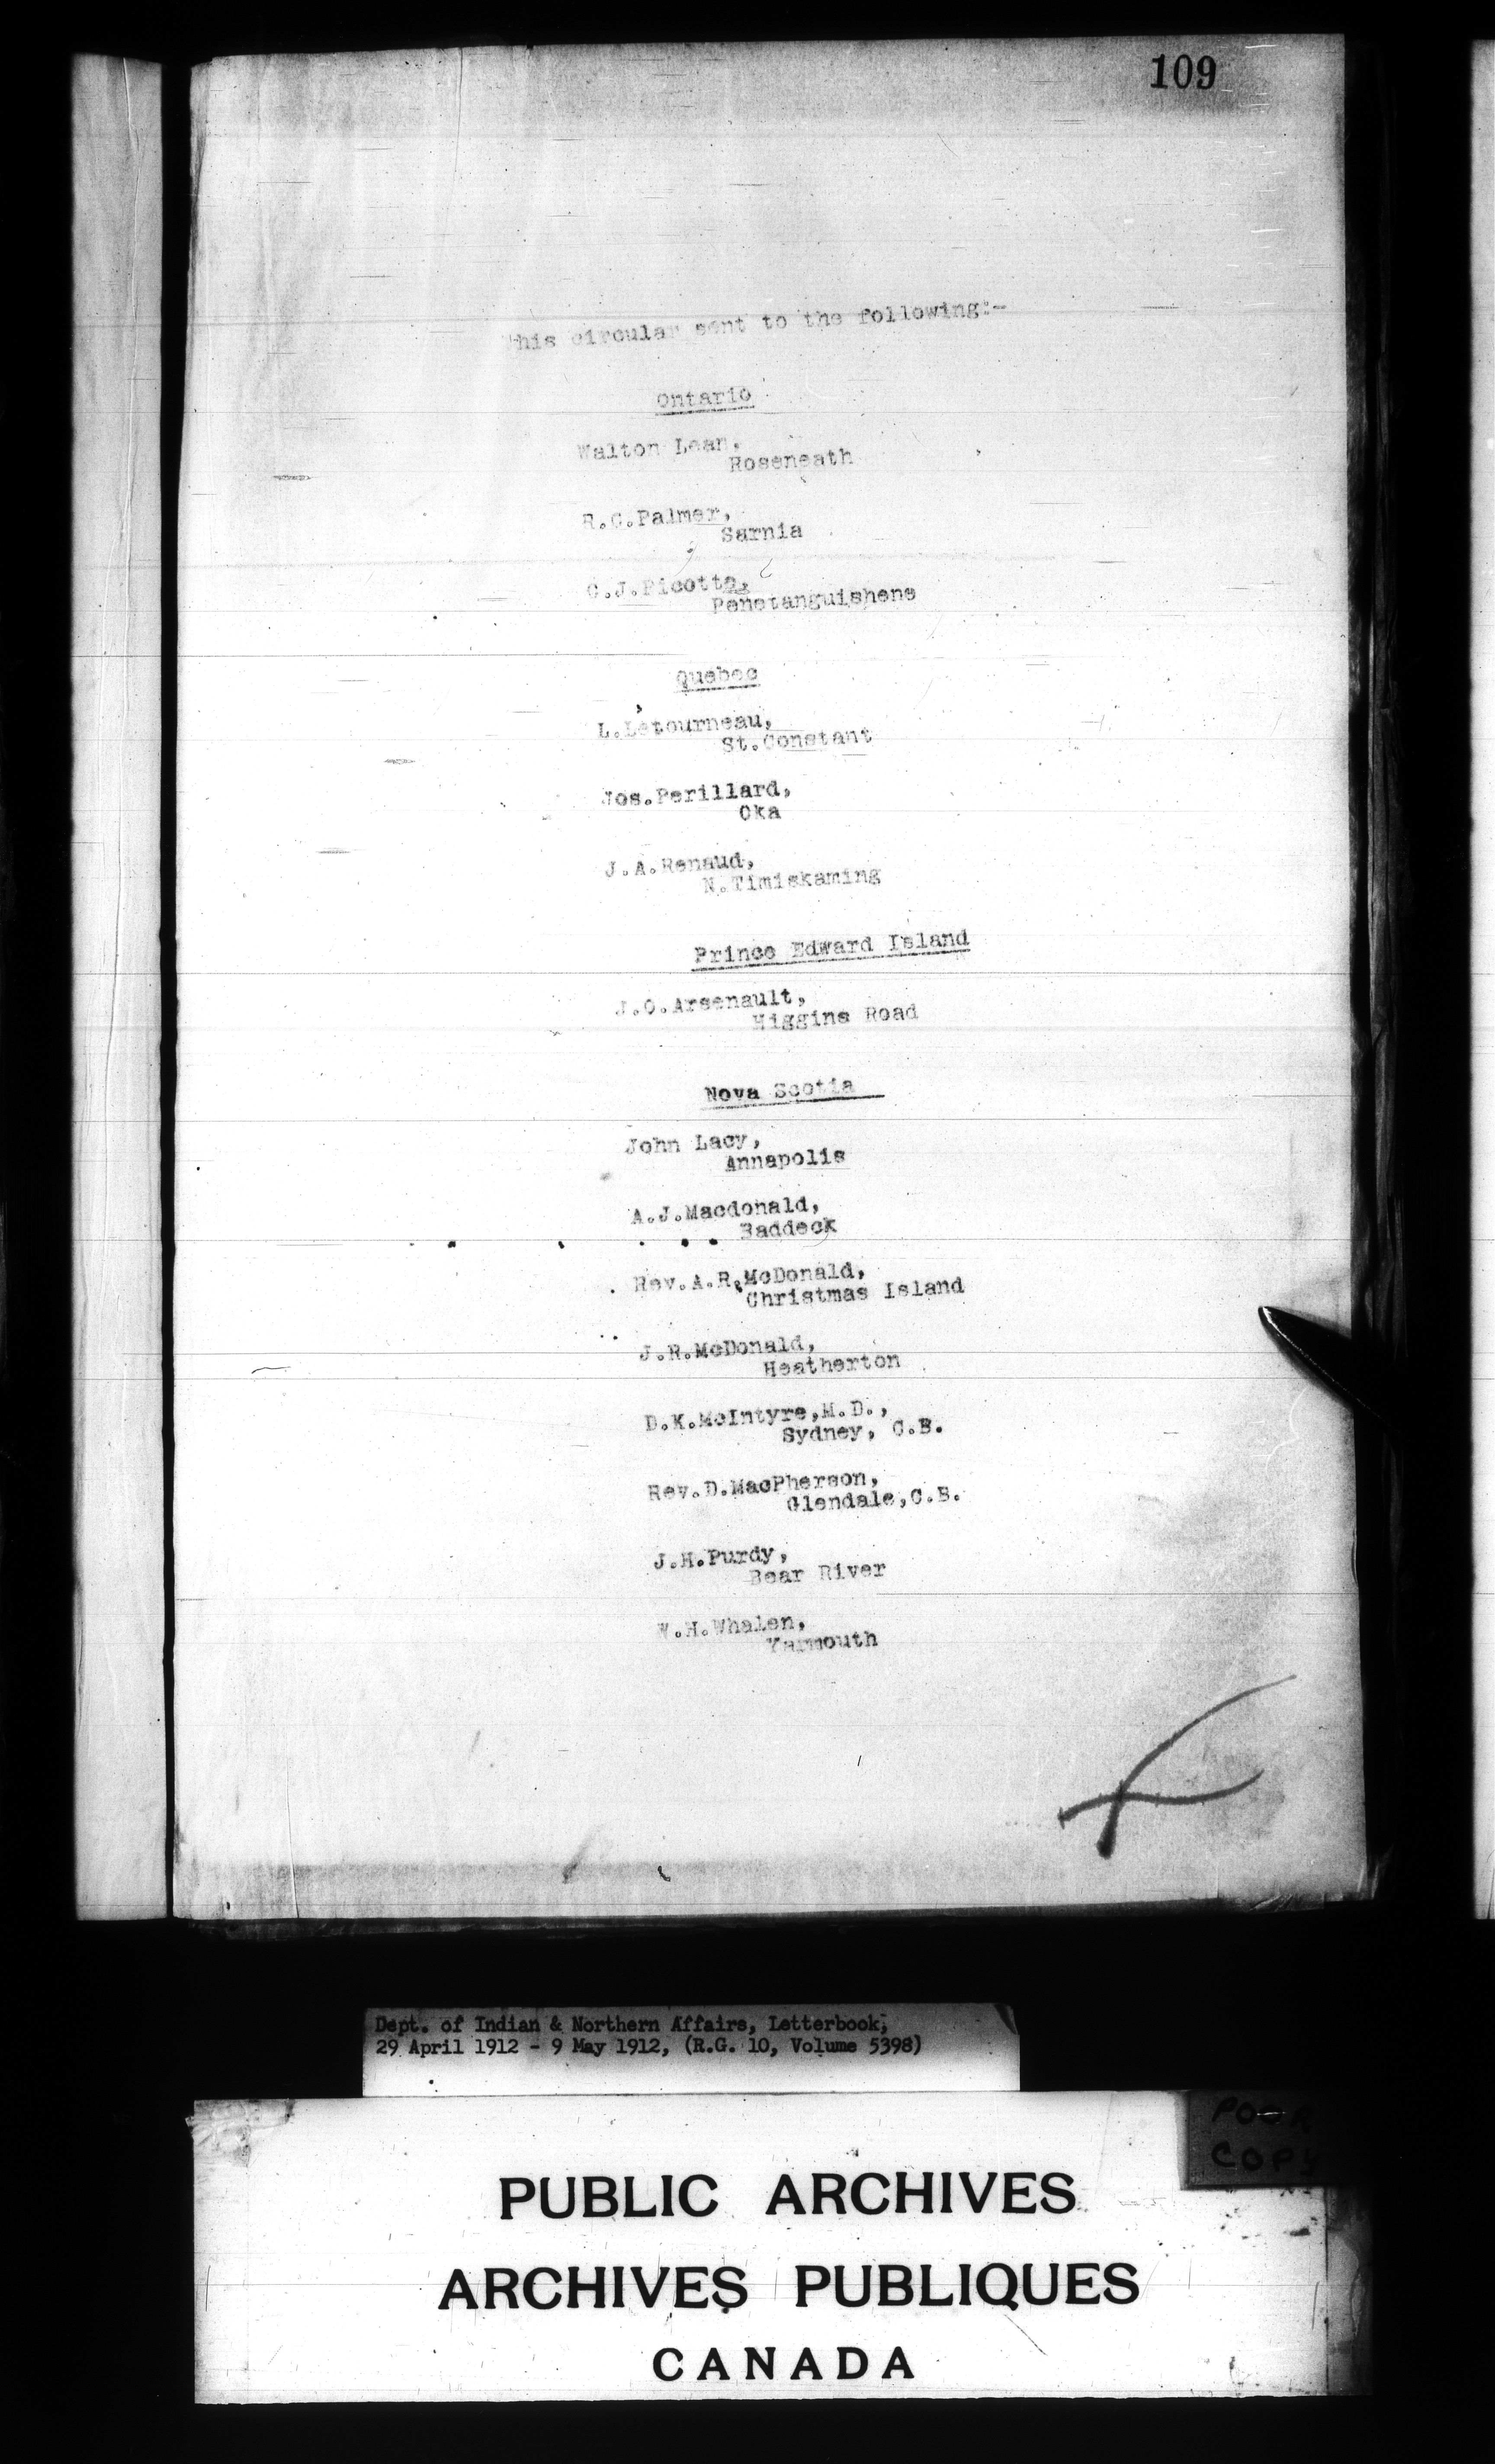 109
This circular sent to the following:-
Ontario
Walton Lean,
Roseneath
R.C.Palmer,
Sarnia
C.J.Picotte,
Penetanguishene
Quebec
L.Letourneau,
St.Constant
Jos.Perillard,
Oka
J.A.Renaud,
N.Timiskaming
Prince Edward Island
J.O.Arsenault,
Higgins Road
Nova Scotia
John Lacy,
Annapolis
A.J.Macdonald,
Baddeck
Rev.A.R.McDonald,
Christmas Island
J.R.McDonald,
Heatherton
D.K.McIntyre,M.D.,
Sydney, C.B.
Rev.D.MacPherson,
Glendale,C.B.
J.H.Purdy,
Bear River
W.H.Whalen,
Yarmouth
Dept. of Indian & Northern Affairs, Letterbook,
29 April 1912 - 9 May 1912, (R.G. 10, Volume 5398)
POOR
COPY
PUBLIC ARCHIVES
ARCHIVES PUBLIQUES
CANADA